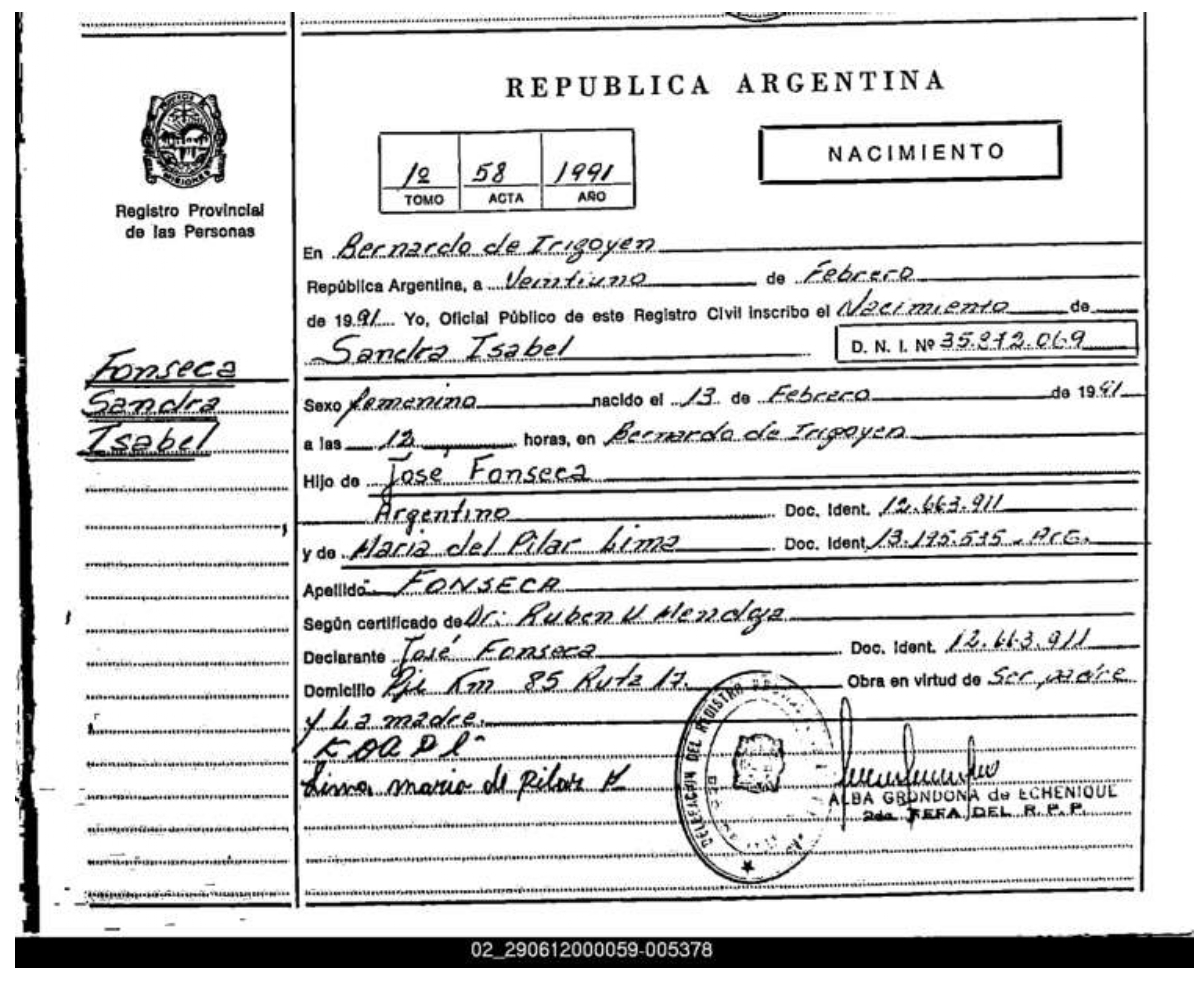 REPUBLICA ARGENTINA
MISIONES
Registro Provincial
de las Personas
58 1991
TOMO ACTA AÑO
NACIMIENTO
En Bernardo de Irigoyen
República Argentina, a Veintiuno de Febrero
de 1991 Yo, Oficial Público de este Registro Civil inscribo el Nacimiento de
Sandra Isabel D. N. I. Nº
Fonseca
Sandra
Isabel
Sexo femenino nacido el 13 de Febrero de 1991
a las 12 horas, en Bernardo de Irigoyen
Hijo de Jose Fonseca
Argentino Doc. Ident. 12.663.911
y de Maria del Pilar Lima Doc. Ident. 13.195.535 - Arg.
Apellido FONSECA
Según certificado de Dr. Ruben
Declarante José Fonseca Doc. Ident. 12.663.911
Domicilio Km 85 Ruta 17. Obra en virtud de Ser padre
y La madre.
Lima, maria del Pilar
DELEGACION DEL REGISTRO
ALBA GRONDONA de ECHENIQUE
2da JEFA DEL R.P.P.
02_290612000059-005378